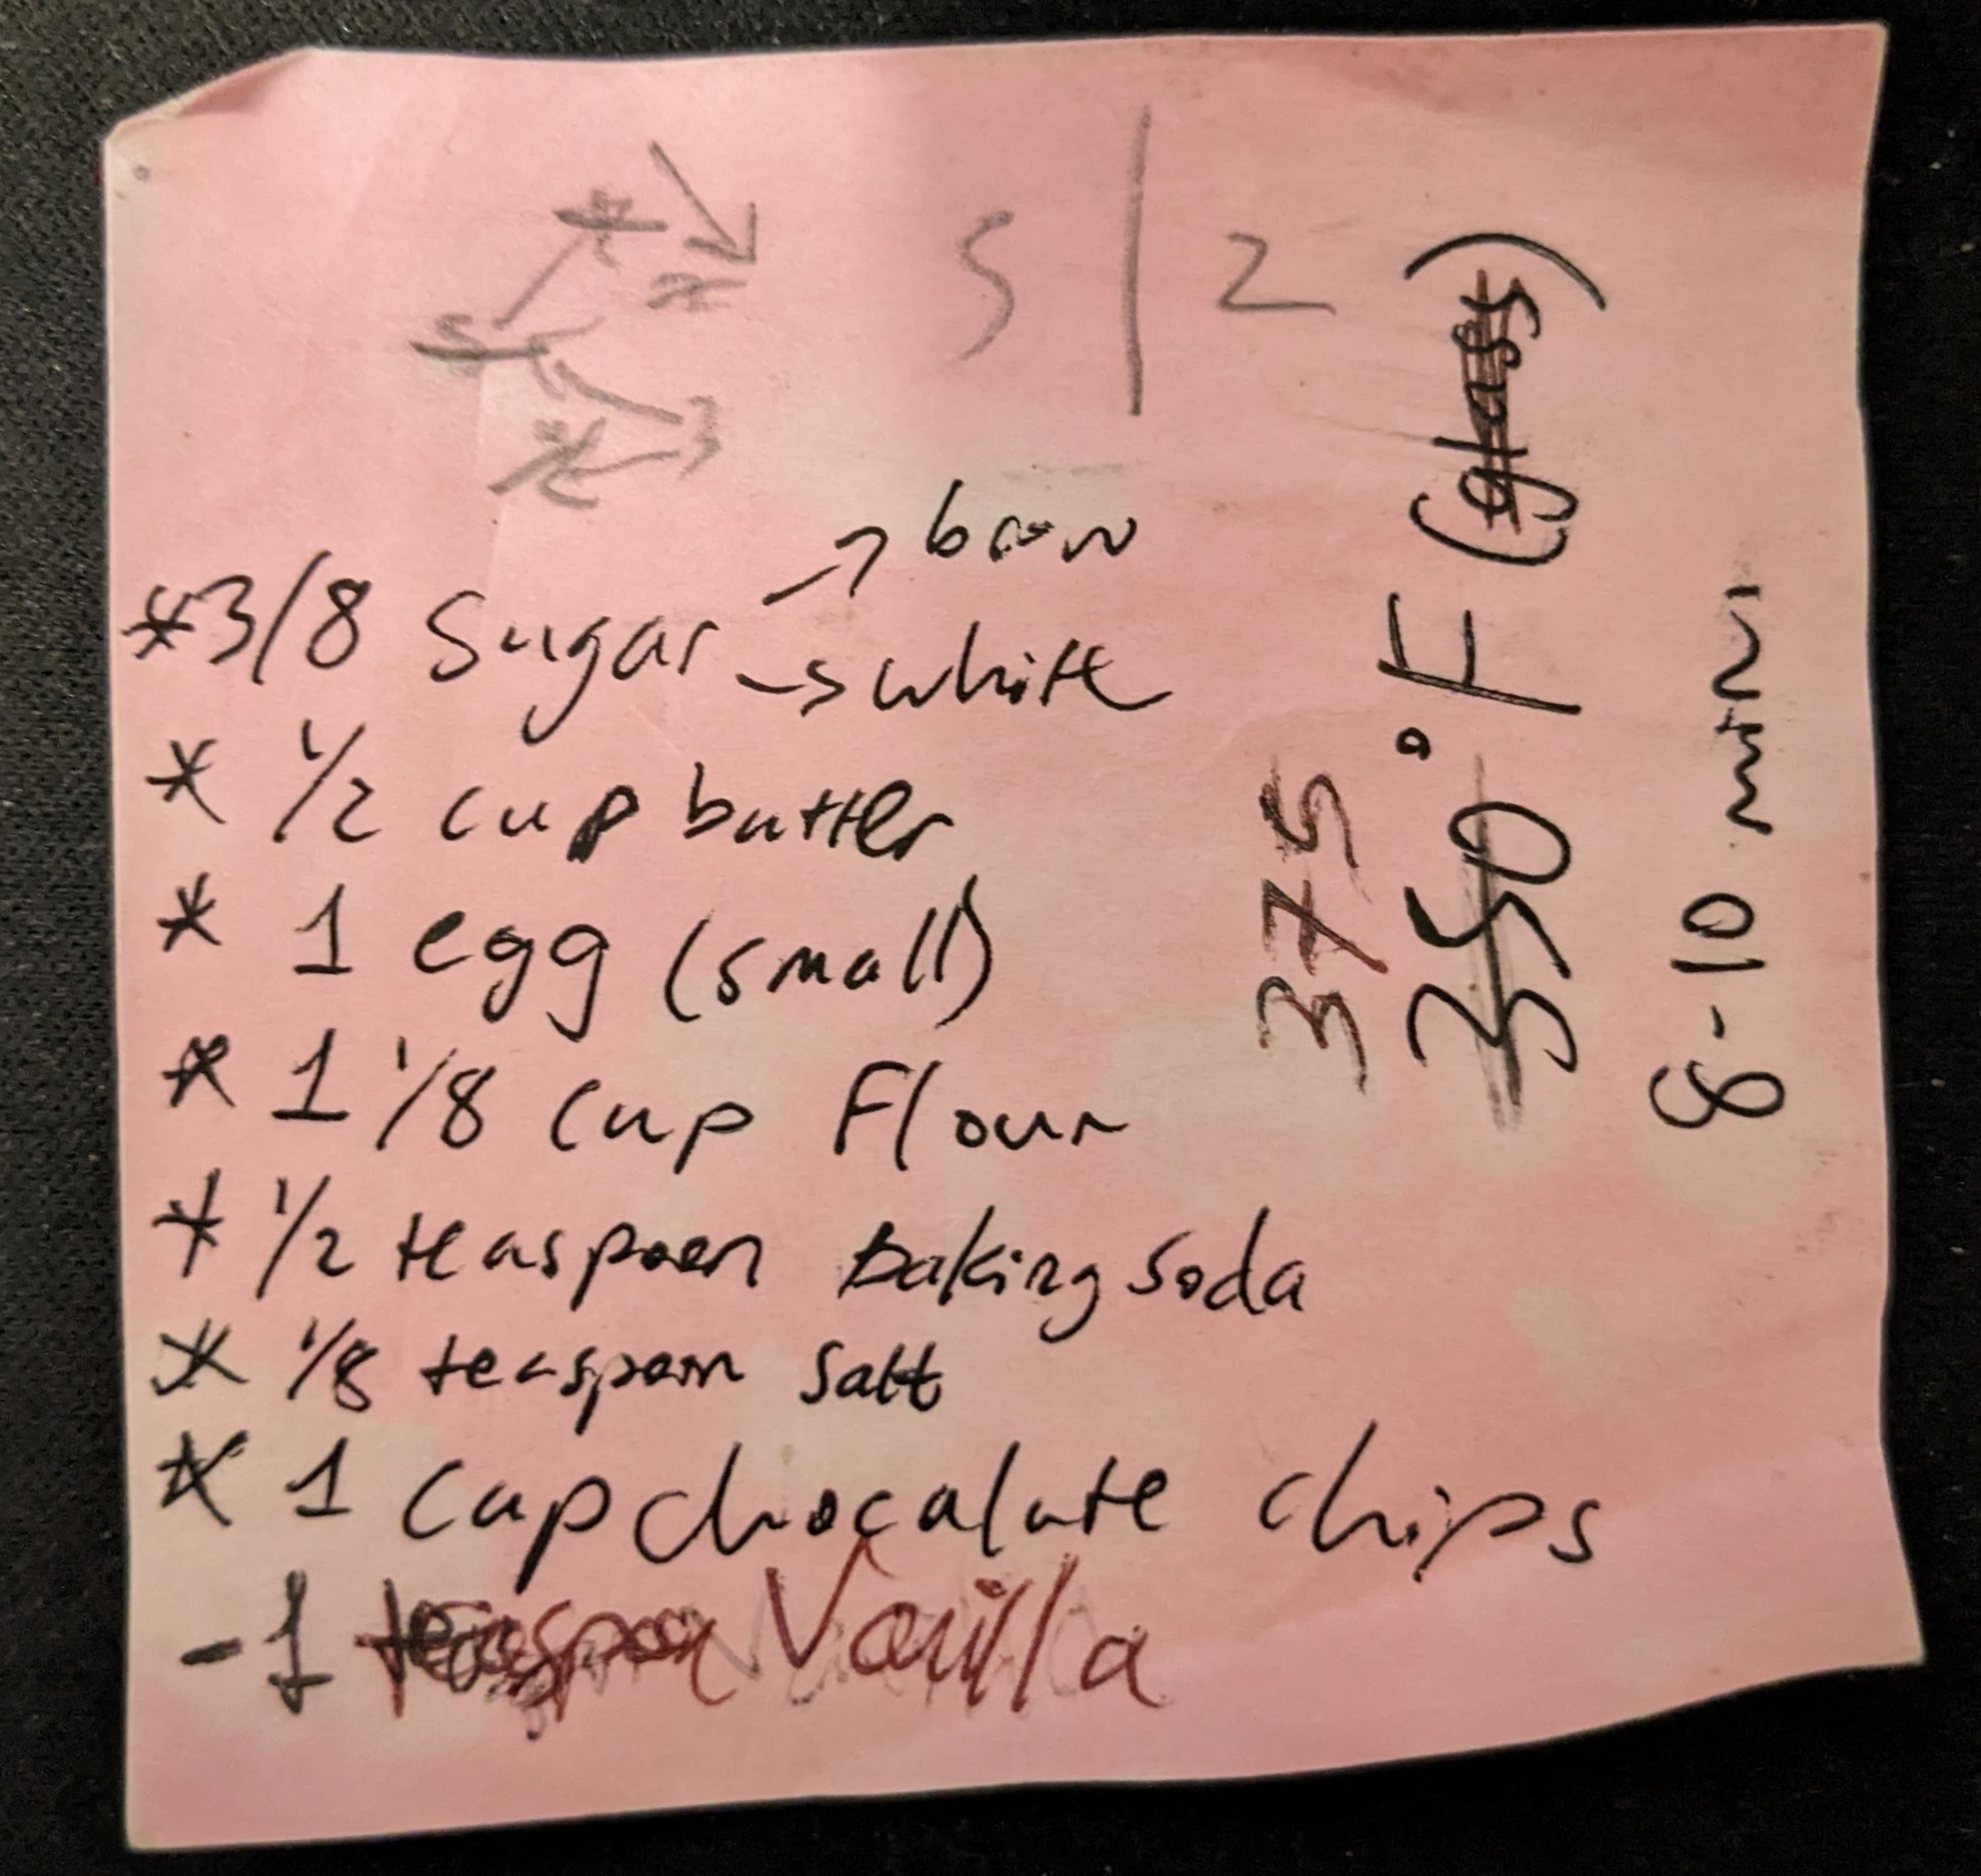 5 | 2
*3/8 sugar → brow
→ white
* 1/2 cup butter
* 1 egg (small)
* 1 1/8 cup Flour
* 1/2 teaspoon Baking soda
* 1/8 teaspoon salt
* 1 cup chocalate chips
-1 teaspoon Vanilla
375
350°F (glass)
8-10 min